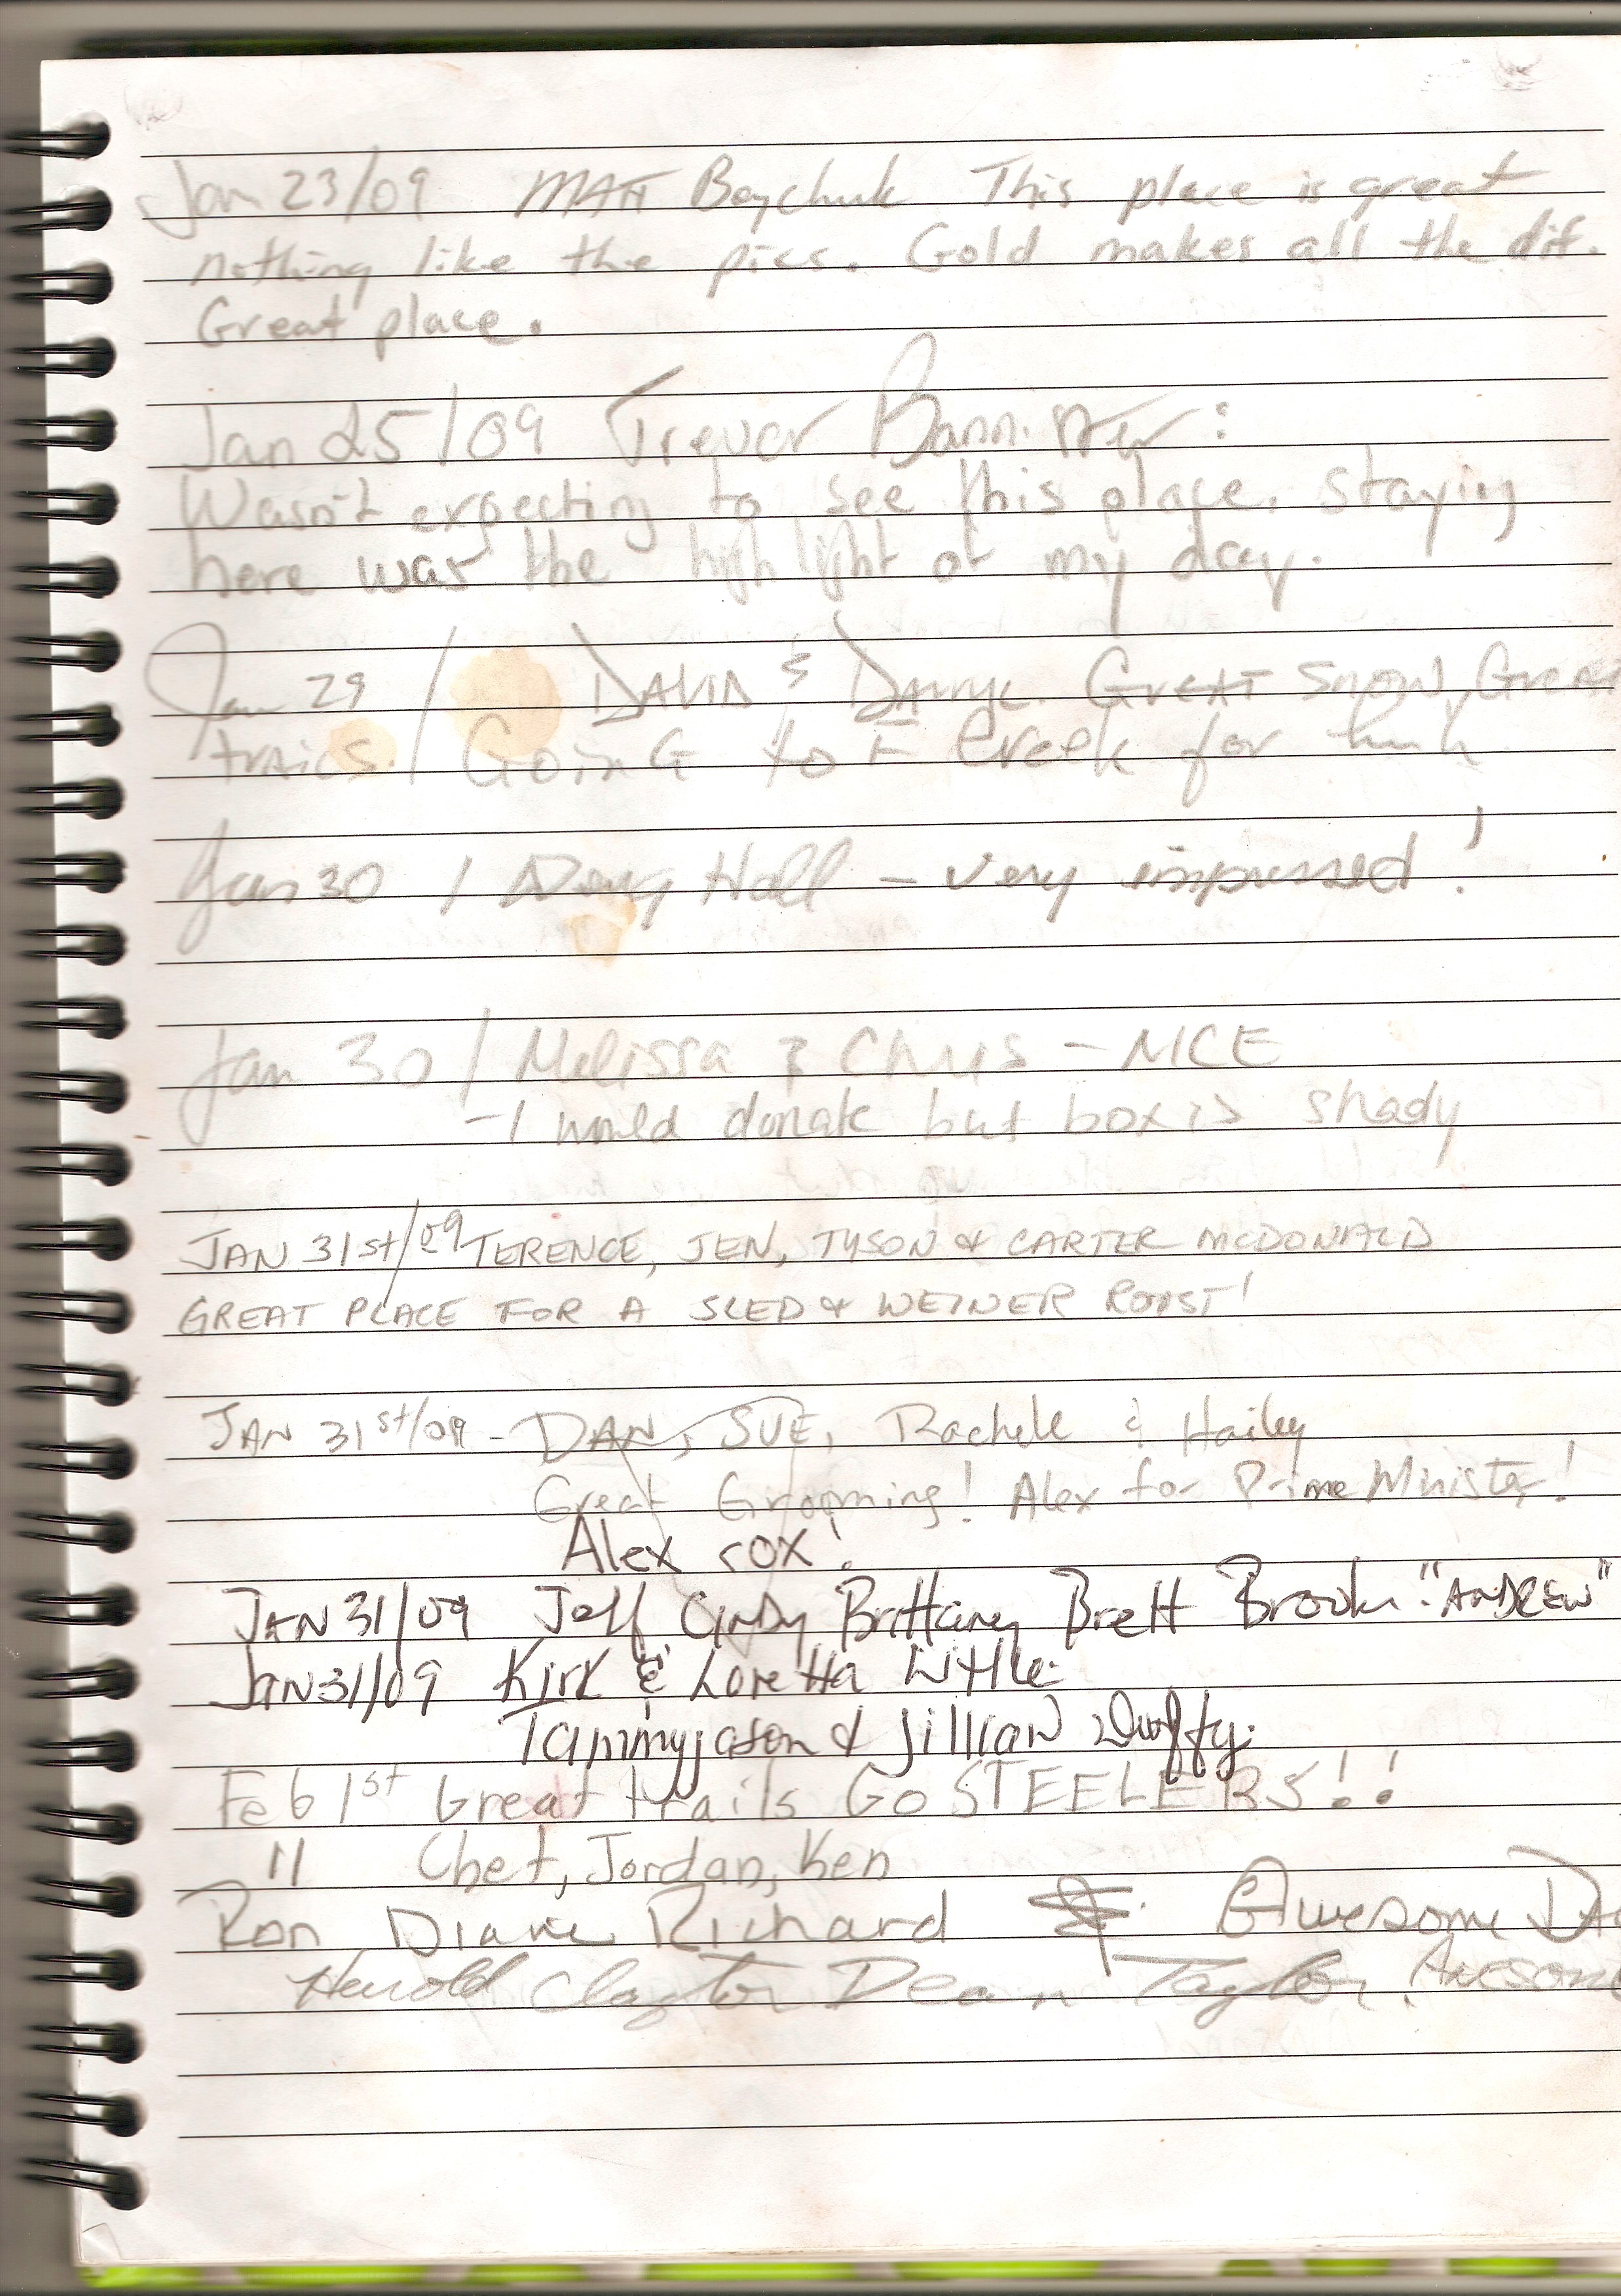 Jan 23/09 MATT Boychuk This place is great
nothing like the pics. Gold makes all the dif.
Great place.
Jan 25/09 Trevor Bannister:
Wasn't expecting to see this place. Staying
here was the high light of my day.
Jan 29 / DAVID & Darryl. GREAT SNOW, Grea
trails. / Going to F Creek for
Jan 30 / Doug Hall - very impressed!
Jan 30 / Melissa & Chris - NICE
- I would donate but box is shady
JAN 31st/09 TERENCE, JEN, TYSON & CARTER MCDONALD
GREAT PLACE FOR A SLED & WEINER ROAST!
JAN 31st/09 - DAN, SUE, Rachelle & Hailey
Great Grooming! Alex for Prime Minister!
Alex rox!
JAN 31/09 Jeff Cindy Brittany Brett Brooke "ANDREW"
JAN 31/09 Kirk & Loretta Little
Tammy jason & Jillian Duffy.
Feb 1st Great trails Go STEELERS!!
" Chet, Jordan, Ken
Ron Diane Richard Awesome DA
Harold Clayton Dean Taylor. Awesome